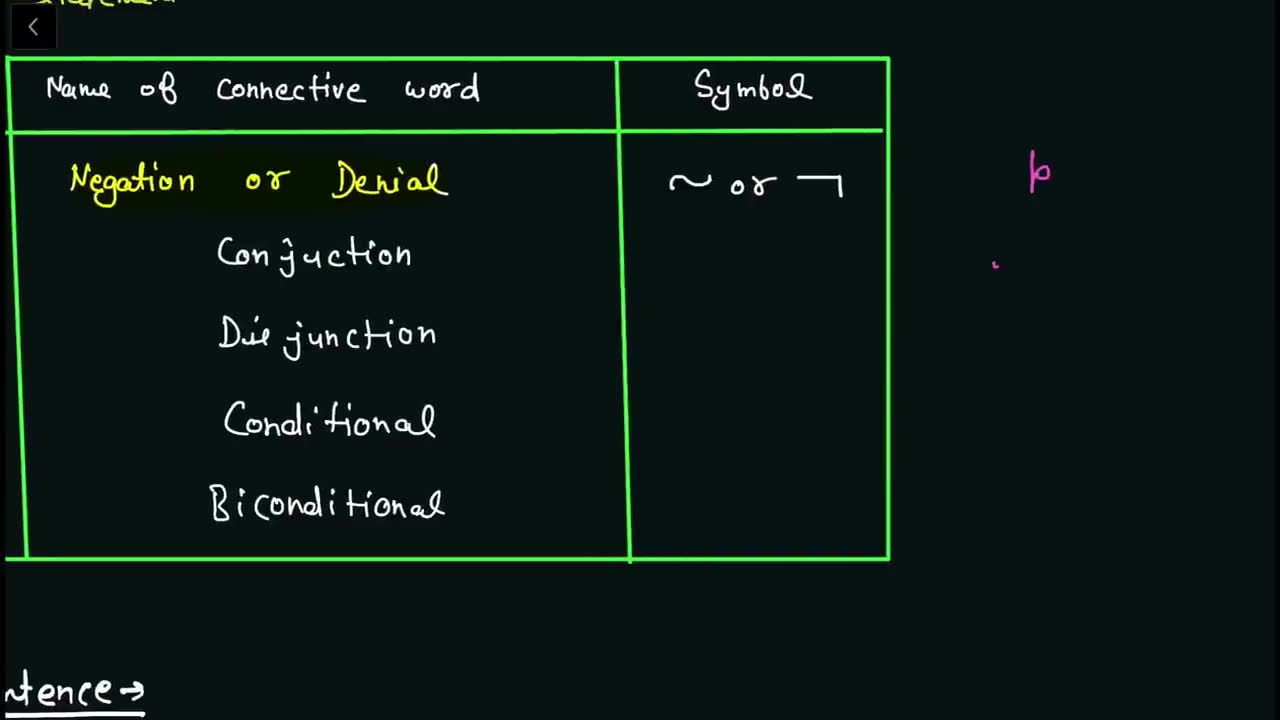 Name of connective word Symbol
Negation or Denial ~ or ¬ p
Conjuction
Disjunction
Conditional
Biconditional
ntence →